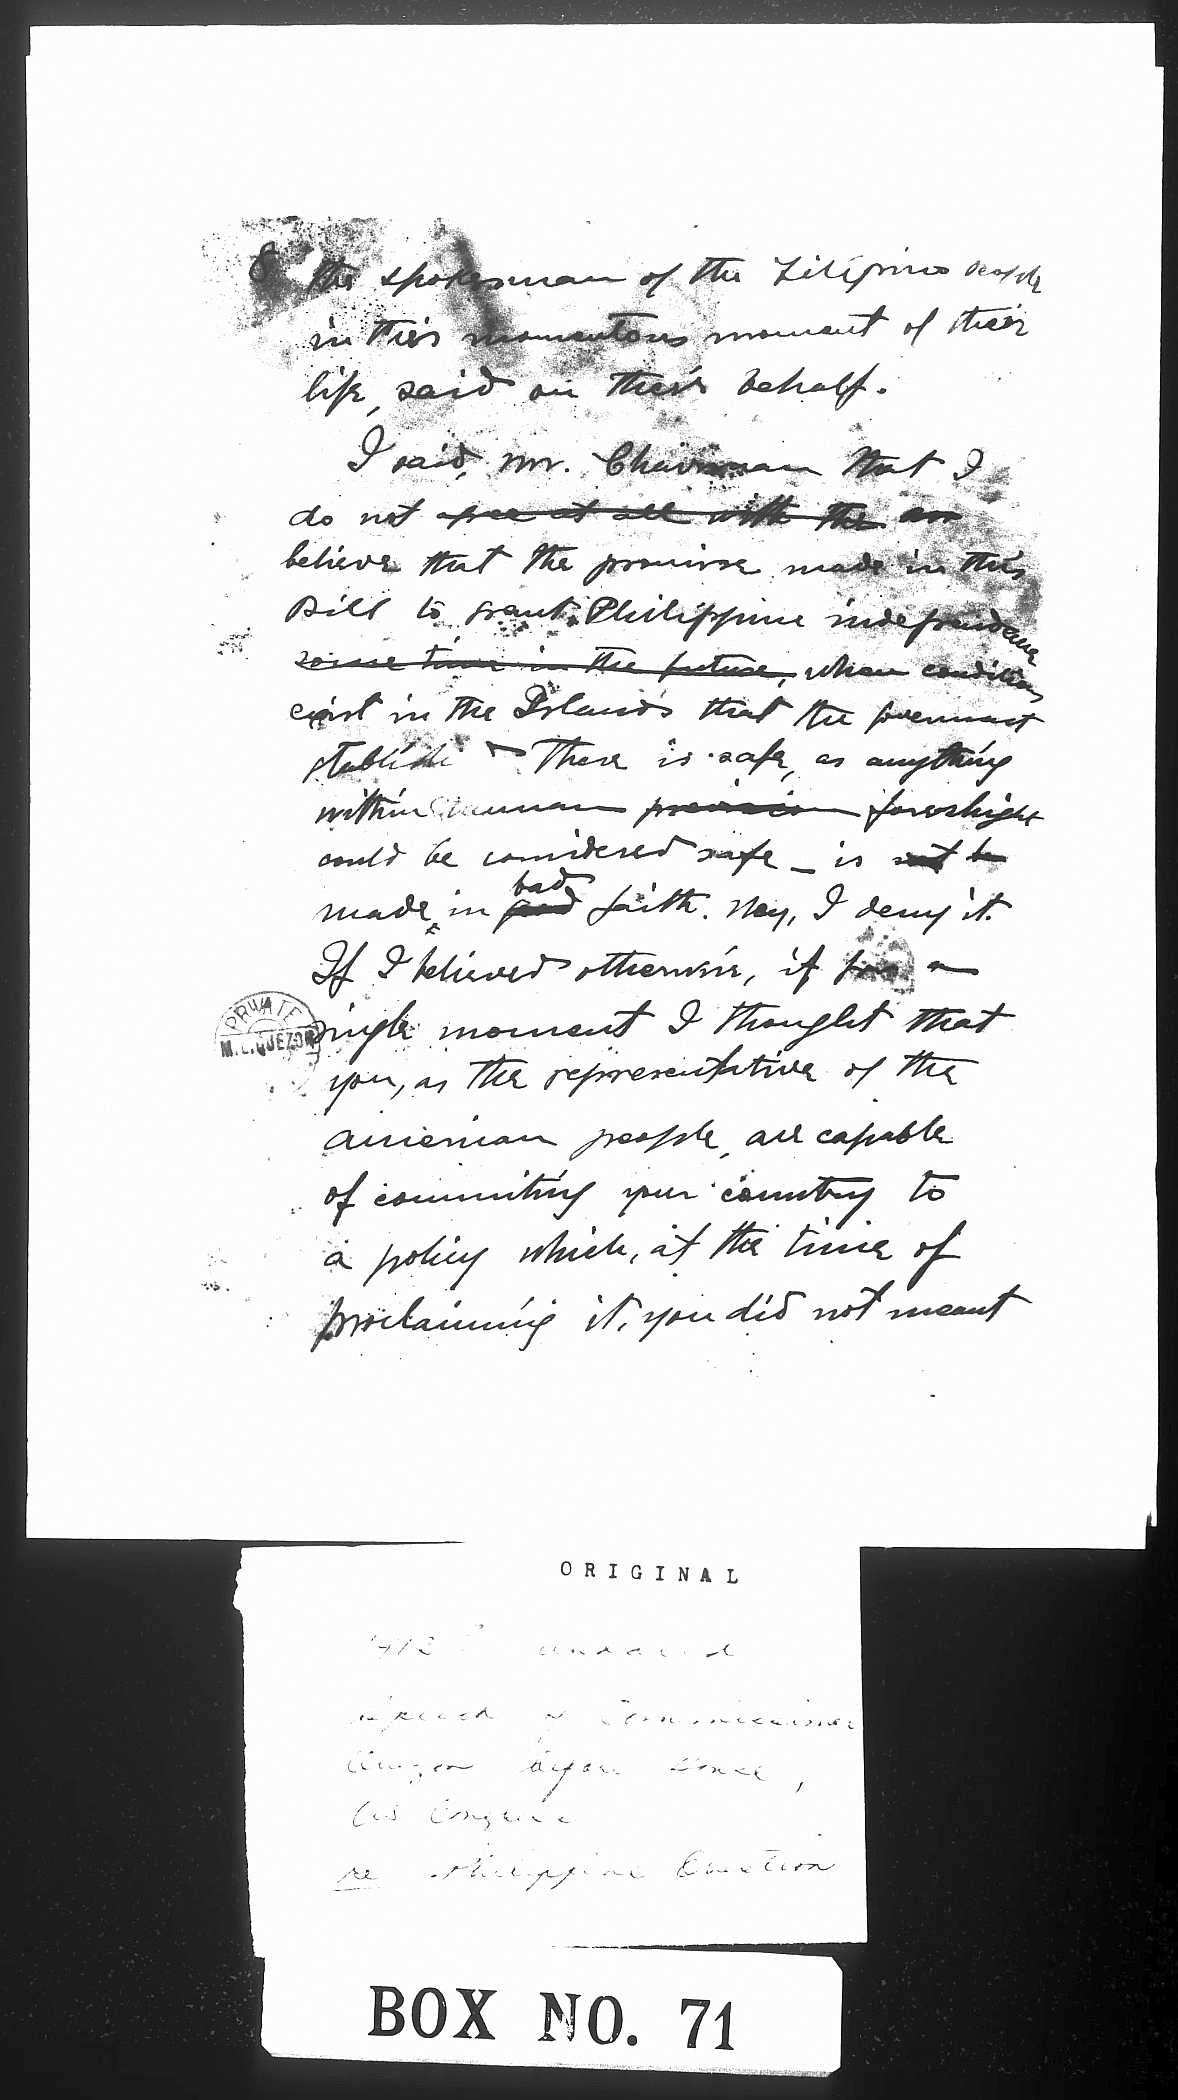 8
the spokesman of the Filipino people
in this momentous moment of their
life, said on their behalf.
I said, Mr. Chairman that I
do not agree at all with the
believe that the promise made in this
Bill to grant Philippine independence
some time in the future, when conditions
exist in the Islands that the government
stablish there is safe, as anything
within human prevision foreshight
could be considered safe _ is not be
made in good bad faith. Nay, I deny it.
If I believed otherwise, if for a
PRIVATE
M.L.QUEZON
single moment I thought that
you, as the representative of the
American people, are capable
of commiting your country to
a policy which, at the time of
proclaiming it, you did not meant
ORIGINAL
1912 ? undated
Speech of Commissioner
Quezon before House,
US Congress
re Philippine Question
BOX NO. 71